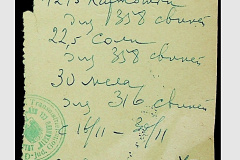 12,5 картошки
для 358 свиней
22,5 соли
для 358 свиней
30 мяса
для 316 свиней
с 16/11 – 30/11